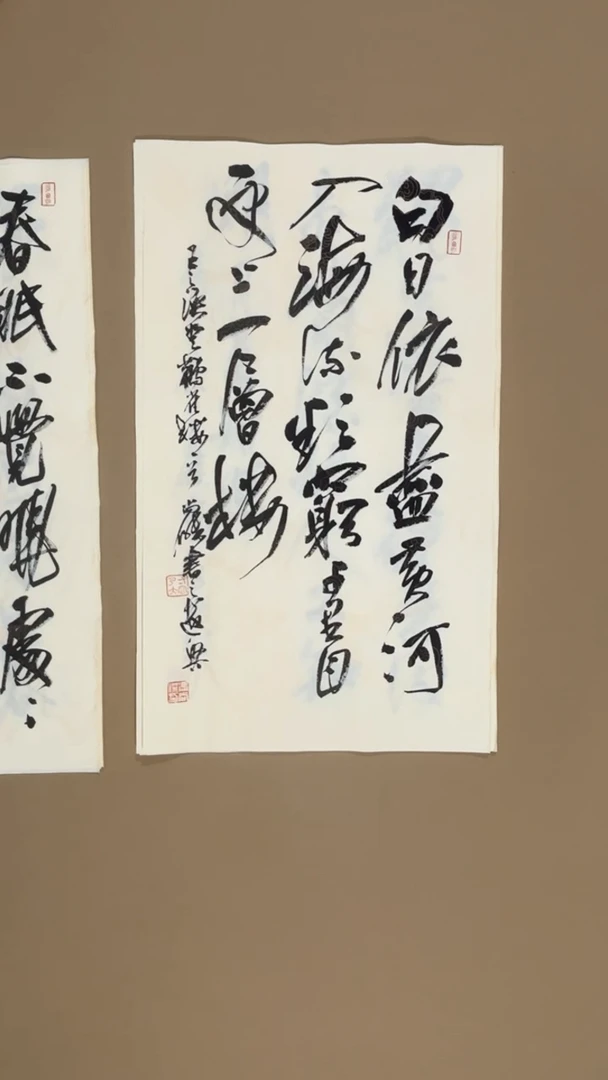 白日依山盡黃河
入海流欲窮千里目
更上一層樓
王之渙登鸛雀樓
書之遣興
春眠不覺曉處〻